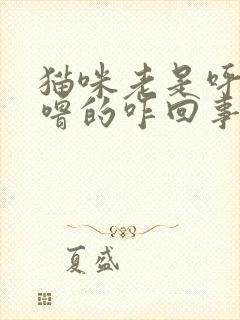 猫咪老是呼
噜的咋回事
夏盛